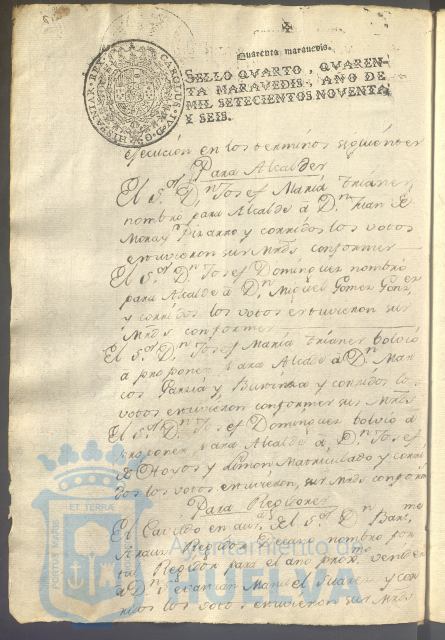 Quarenta maravedis.
SELLO QVARTO, QVAREN-
TA MARAVEDIS, AÑO DE
MIL SETECIENTOS NOVENTA
Y SEIS.
CAROLUS IV D G HISPANIAR REX
ejecucion en los terminos siguientes
Para Alcaldes
El S.or D.n Josef Maria Trianes
nombró para Alcalde á D.n Juan de
Mora y Pizarro y corridos los votos
estuvieron sus Mrds conformes
El S.or D.n Josef Dominguez nombró
para Alcalde á D.n Miguel Gomez Gonz.
y corridos los votos estuvieron sus
Mrds conformes
El S.or D.n Josef Maria Trianes bolvió
a proponer para Alcalde á D.n Mar
cos Garzia y y corridos los
votos estuvieron conformes sus Mrds
El S.or D.n Josef Dominguez bolvió á
proponer para Alcalde á D.n Josef
de Hoyos y Limon Matriculado y corri
dos los votos estuvieron sus Mrds confor
Para Regidores
El Cavildo en aus.a del S.or D.n Bar.me
Arauz Regidor Decano nombró por
tal Regidor para el año prox.mo venidero
á D.n Sevastian Manuel Suarez y cor
ridos los votos estuvieron sus Mrds
PORTUS MARIS
ET TERRAE
Ayuntamiento de
HUELVA